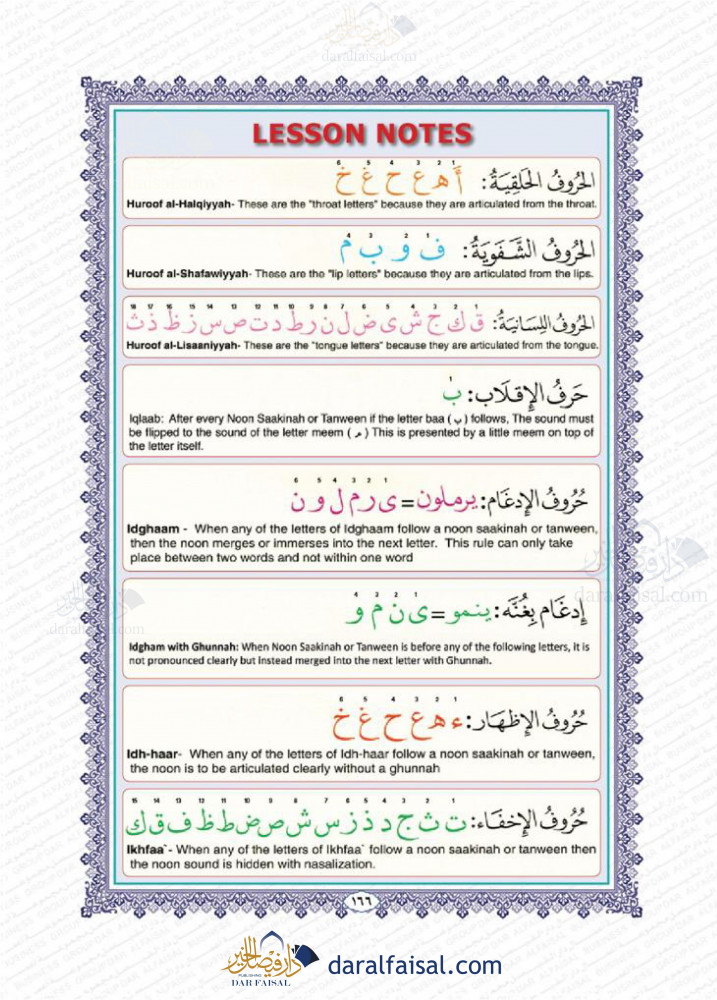 daralfaisal.com
LESSON NOTES
6 5 4 3 2 1
الحُرُوفُ الحَلْقِيَةُ: أ ه ع ح غ خ
Huroof al-Halqiyyah- These are the "throat letters" because they are articulated from the throat.
4 3 2 1
الحُرُوفُ الشَّفَوِيَةُ: ف و ب م
Huroof al-Shafawiyyah- These are the "lip letters" because they are articulated from the lips.
18 17 16 15 14 13 12 11 10 9 8 7 6 5 4 3 2 1
الحُرُوفُ اللِسَانِيَةُ: ق ك ج ش ى ض ل ن ر ط د ت ص س ز ظ ذ ث
Huroof al-Lisaaniyyah- These are the "tongue letters" because they are articulated from the tongue.
1
حَرفُ الإِقلَاب: ب
Iqlaab: After every Noon Saakinah or Tanween if the letter baa ( ب ) follows, The sound must
be flipped to the sound of the letter meem ( م ) This is presented by a little meem on top of
the letter itself.
6 5 4 3 2 1
حُرُوفُ الإِدغَام: يرملون = ى ر م ل و ن
Idghaam - When any of the letters of Idghaam follow a noon saakinah or tanween,
then the noon merges or immerses into the next letter. This rule can only take
place between two words and not within one word
4 3 2 1
إِدغَام بِغُنَّه: ينمو = ى ن م و
Idgham with Ghunnah: When Noon Saakinah or Tanween is before any of the following letters, it is
not pronounced clearly but instead merged into the next letter with Ghunnah.
6 5 4 3 2 1
حُرُوفُ الإِظهَار: ء ه ع ح غ خ
Idh-haar- When any of the letters of Idh-haar follow a noon saakinah or tanween,
the noon is to be articulated clearly without a ghunnah
15 14 13 12 11 10 9 8 7 6 5 4 3 2 1
حُرُوفُ الإِخفَاء: ت ث ج د ذ ز س ش ص ض ط ظ ف ق ك
Ikhfaa`- When any of the letters of Ikhfaa` follow a noon saakinah or tanween then
the noon sound is hidden with nasalization.
١٦٦
دار فيصل الخير
PUBLISHING
DAR FAISAL
daralfaisal.com